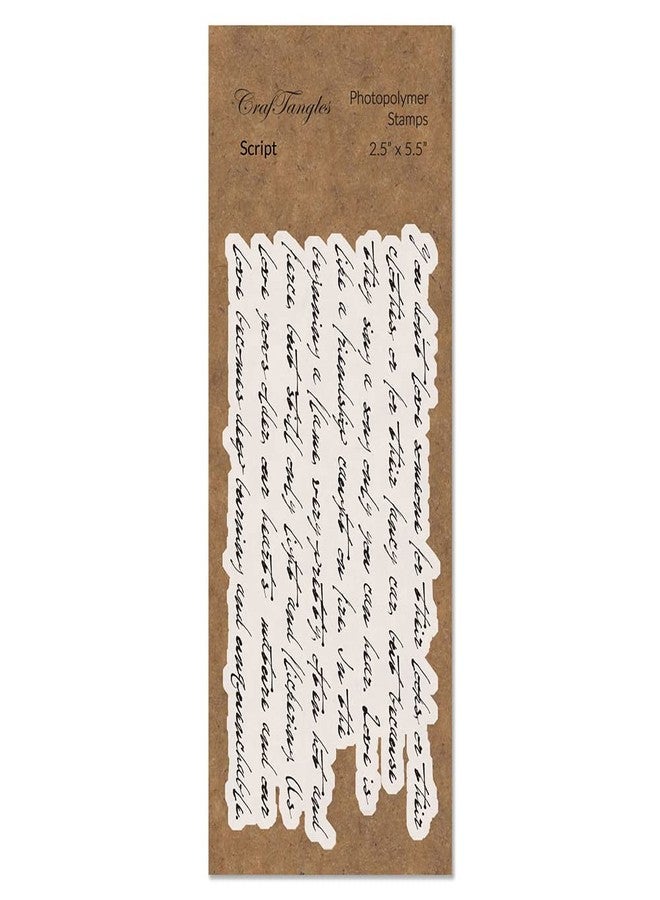 CrafTangles
Photopolymer
Stamps
Script
2.5" x 5.5"
You don't love someone for their looks, or their
clothes or for their fancy car, but because
they sing a song only you can hear. Love is
like a friendship caught on fire. In the
beginning a flame, very pretty, often hot and
fierce, but still only light and flickering. As
love grows older, our hearts mature and our
love becomes deep burning and unquenchable.